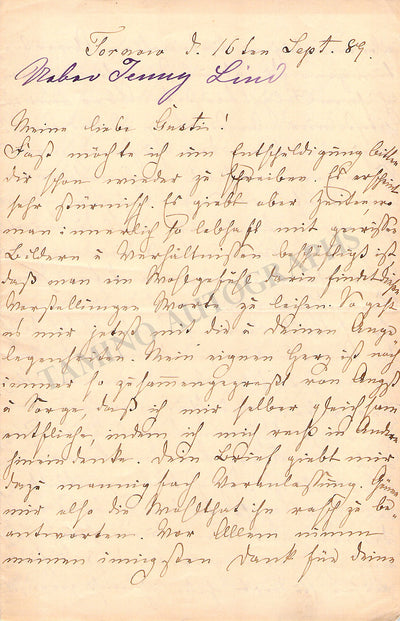 Tornow d. 16ten Sept. 89.
Ueber Jenny Lind
Meine liebe Gusti!
Fast möchte ich um Entschuldigung bitten
dir schon wieder zu schreiben. Es erscheint
sehr stürmisch. Es giebt aber Zeiten wo
man innerlich so lebhaft mit gewissen
Bildern u Verhältnissen beschäftigt ist
daß man ein Wohlgefühl darin findet diesen
Vorstellungen Worte zu leihen. So geht
es mir jetzt mit dir u deinen Ange
legenheiten. Mein eignes Herz ist noch
immer so zusammengepreßt von Angst
u Sorge, daß ich mir selber gleichsam
entfliehe, indem ich mich recht in Andre
hineindenke. Dein Brief giebt mir
dazu mannigfach Veranlassung. Gönne
mir also die Wohlthat ihn rasch zu be-
antworten. Vor Allem nimm
meinen innigsten Dank für deine
TAMINO AUTOGRAPHS